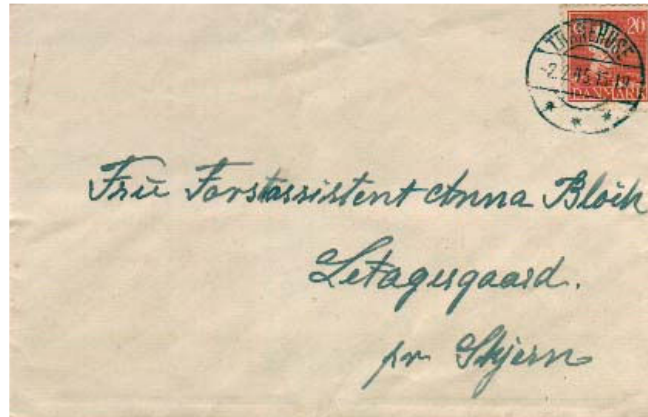 20
TRANEHUSE
-2.2.45.15-19
DANMARK
Fru Forstassistent Anna Bloch
Letagergaard.
pr Skjern